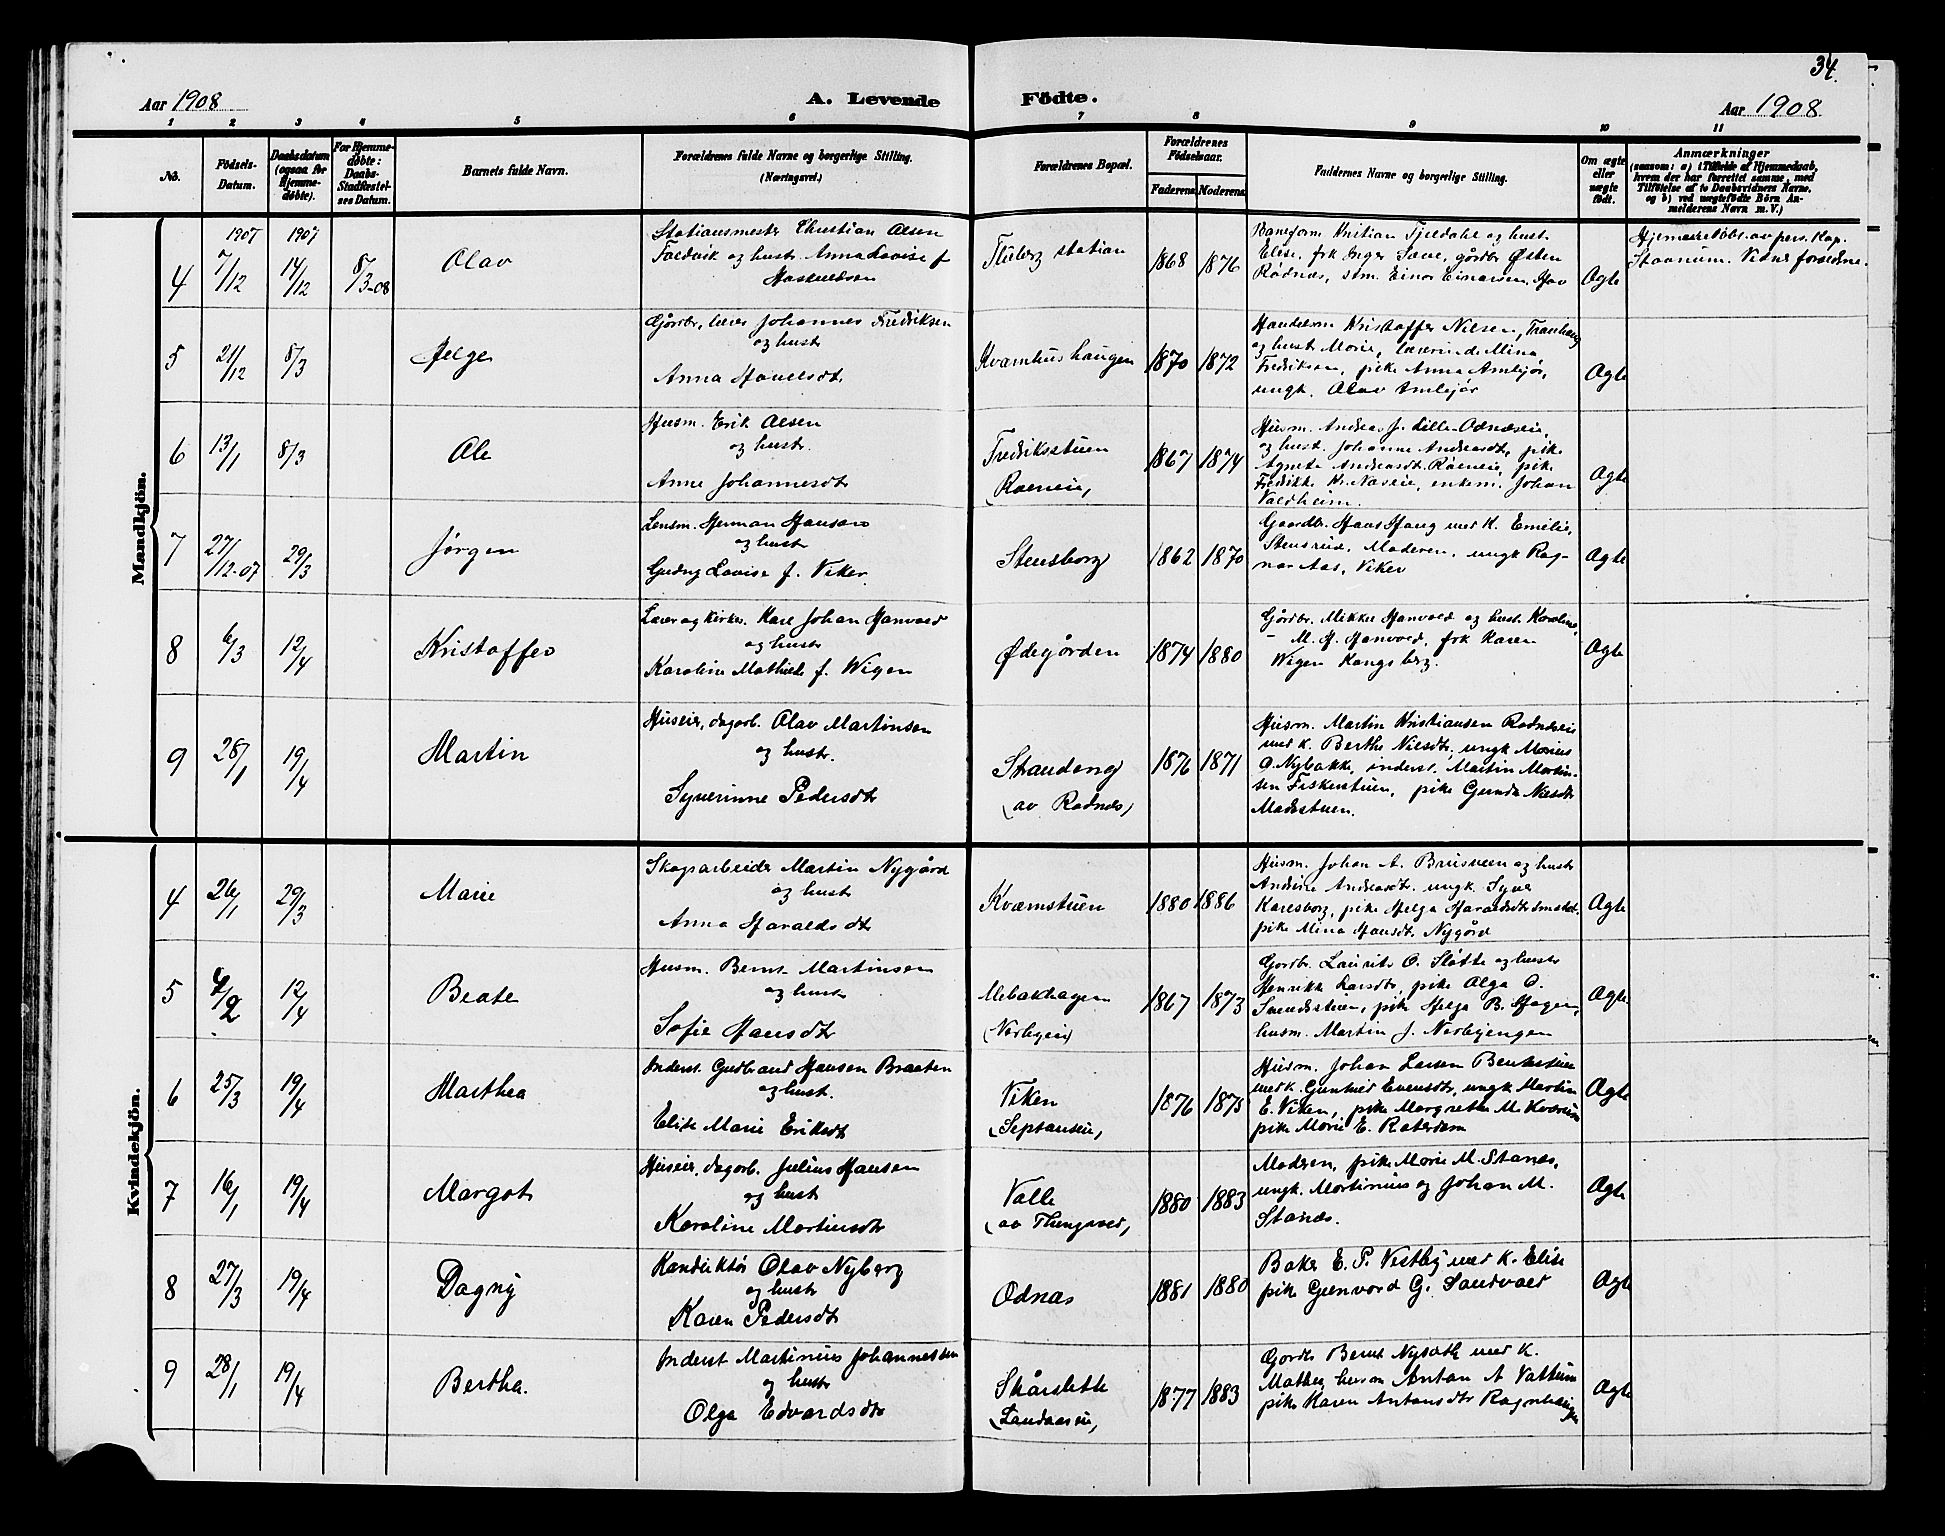 34.
Aar 1908
A. Levende Födte.
Aar 1908
1 2 3 4 5 6 7 8 9 10 11
No.
Födsels-
Datum.
Daabsdatum
(ogsaa for
Hjemme-
døbte).
For Hjemme-
døbte:
Daabs-
Stadfæstel-
ses Datum.
Barnets fulde Navn.
Forældrenes fulde Navne og borgerlige Stilling.
(Næringsvei.)
Forældrenes Bopæl.
Forældrenes
Fødselsaar.
Faderens Moderens
Faddernes Navne og borgerlige Stilling.
Om ægte
eller
uægte
født.
Anmærkninger
(saasom: a) i Tilfælde af Hjemmedaab,
hvem der har forrettet samme, med
Tilføielse af to Daabsvidners Navne,
og b) ved uægtefødte Börn An-
melderens Navn m. V.)
Mandkjön.
4
1907
7/12
1907
14/12
8/3-08
Olav
Stationsmester Christian Olsen
Faldvik og hustr. Anna Lovise f.
Fluberg station
1868 1876
Baneform. Kristian Fjeldahl og hust.
Elise, frk Inger Saue, gårdbr Østen
Rødnæs, stm. Einar Einarsen, Hov
Ægte
Hjemmedøbt av pers. Kap.
Staanum. Vidner forældrene.
5
21/12
8/3
Helge
Gårdbr, lærer Johannes Fredriksen
og hustr
Anna Hanelsdt
Kvamhushaugen
1870 1872
Handelsm Kristoffer Nilsen, Tranhaug
og hust Marie, lærerinde Mina
Fredriksen, pike Anna Amlejør,
ungk. Olav Amlejør
Ægte
6
13/1
8/3
Ole
Husm. Erik Olsen
og hustr
Anne Johannesdt
Fredriksstuen
(Røeneie)
1867 1874
Husm. Andreas J. Lille-Odnæseie,
og hust. Johanne Andreasdt, pike
Agnete Andreasdt. Røeneie, pike
Fredrikke K. Næseie, enkem. Johan
Valdheim.
Ægte
7
27/12-07
29/3
Jørgen
Lensm. Herman Hansen
og hustr
Gudny Lovise f. Viker.
Stensborg
1862 1870
Gaardbr. Hans Haug med K. Emilie,
Stensrud, Moderen, ungk Rag-
nar Aas, Viker
Ægte
8
6/3
12/4
Kristoffer
Lærer og kirkes. Karl Johan Hanvold
og hustr
Karoline Mathilde f. Wigen
Ødegården
1874 1880
Gårdbr. Mikkel Hanvold og hust. Karoline,
M. H. Hanvold, frk Karen
Wigen Kongsberg.
Ægte
9
28/1
19/4
Martin
Huseier, dagarb. Olav Martinsen
og hustr.
Syverinne Pedersdt
Strandeng
(av Rødnæs)
1876 1871
Husm. Martin Kristiansen Rødnæseie
med k. Berthe Nielsdt, ungk Marius
O. Nybakke, inderst. Martin Martin-
sen Fiskestuen, pike Gunda Nielsdt
Madsstuen.
Kvindekjön.
4
26/1
29/3
Marie
Skogsarbeider Martin Nygård
og hustr
Anna Haraldsdt
Kvæmstuen
1880 1886
Husm. Johan A. Brusveen og hustr
Andrine Andreasdt. ungk. Syver
Karlsborg, pike Helga Haraldsdt
pike Mina Hansdt. Nygård
Ægte
5
4/2
12/4
Beate
Husm. Bernt Martinsen
og hustr
Sofie Hansdt
Mebakhagen
1867 1873
Gårdbr. Laurits O. Sløtte og hustr
Henrikke Larsdt, pike Olga O.
pike Helga B. Hagen,
husm. Martin J. Nerbyengen
Ægte
6
25/3
19/4
Marthea
Inderst. Gudbrand Hansen Braaten
og hust.
Elise Marie Eriksdt
Viken
1876 1875
Husm. Johan Larsen Benkestuen
med k. Gunhild Evensdt, ungk Martin
E. Viken, pike Margrethe M. Kværum
pike Marie E. Roterdam
Ægte
7
16/1
19/4
Margot
Huseier, dagarb. Julius Hansen
og hust
Karoline Martinsdt
Valle
1880 1883
Moderen, pike Marie M. Stanæs,
ungk. Martinius og Johan M.
Stanæs.
Ægte
8
27/3
19/4
Dagny
Konduktør Olav Nyberg
og hustr
Karen Pedersdt
Odnæs
1881 1880
Baker E. P. Vestby med k. Elise
pike Gunvord G. Sandvold
Ægte
9
28/1
19/4
Bertha.
Inderst Martinius Johannessen
og hustr
Olga Edvardsdt
Skårslette
(Landaaseie)
1877 1883
Gårdbr Bernt Nysæth med k.
Mathea, husm Anton A Vattum
pike Karen Antonsdt Rognhaugen
Ægte